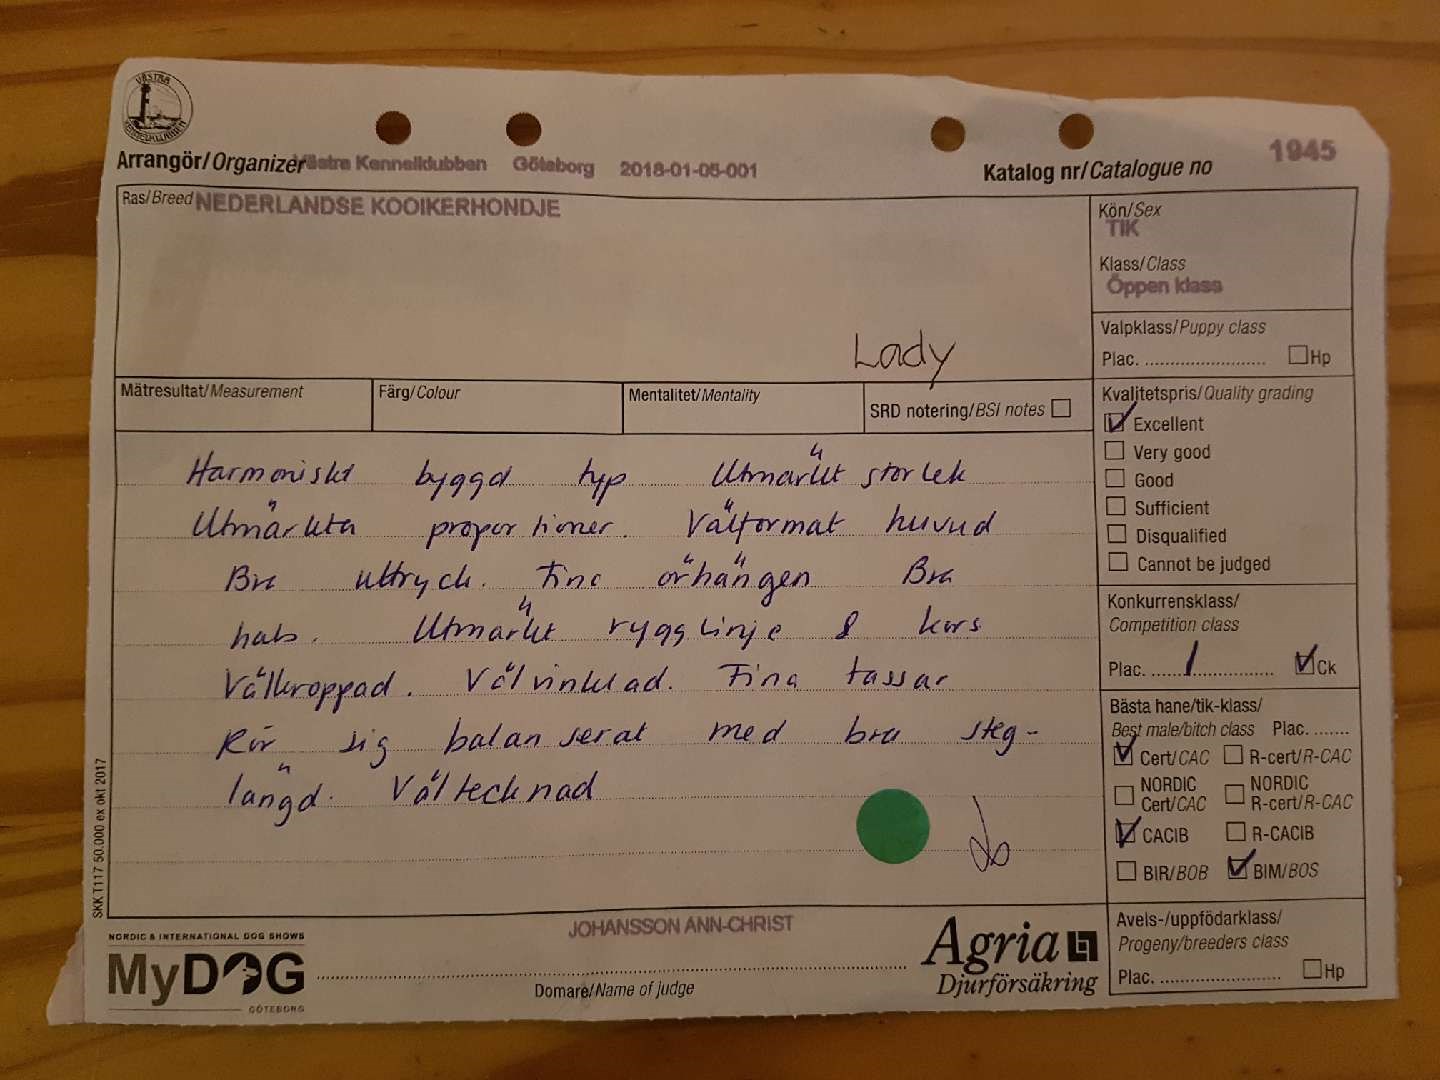 VÄSTRA
KENNELKLUBBEN
Arrangör/Organizer Västra Kennelklubben Göteborg 2018-01-05-001
Katalog nr/Catalogue no 1945
Ras/Breed NEDERLANDSE KOOIKERHONDJE
Kön/Sex
TIK
Klass/Class
Öppen klass
Lady
Valpklass/Puppy class
Plac. ........................ Hp
Mätresultat/Measurement
Färg/Colour
Mentalitet/Mentality
SRD notering/BSI notes
Kvalitetspris/Quality grading
Excellent
Very good
Good
Sufficient
Disqualified
Cannot be judged
Harmoniskt byggd typ Utmärkt storlek
Utmärkta proportioner. Välformat huvud
Bra uttryck. Fina örhängen Bra
hals. Utmärkt rygglinje & kors
Välkroppad. Välvinklad. Fina tassar
Rör sig balanserat med bra steg-
längd. Vältecknad
Konkurrensklass/
Competition class
Plac. ....1............... Ck
Bästa hane/tik-klass/
Best male/bitch class Plac. .......
Cert/CAC R-cert/R-CAC
NORDIC Cert/CAC NORDIC R-cert/R-CAC
CACIB R-CACIB
BIR/BOB BIM/BOS
Avels-/uppfödarklass/
Progeny/breeders class
Plac. ........................ Hp
SKK T117 50.000 ex okt 2017
JOHANSSON ANN-CHRIST
Domare/Name of judge
NORDIC & INTERNATIONAL DOG SHOWS
MyDOG
GÖTEBORG
Agria
Djurförsäkring